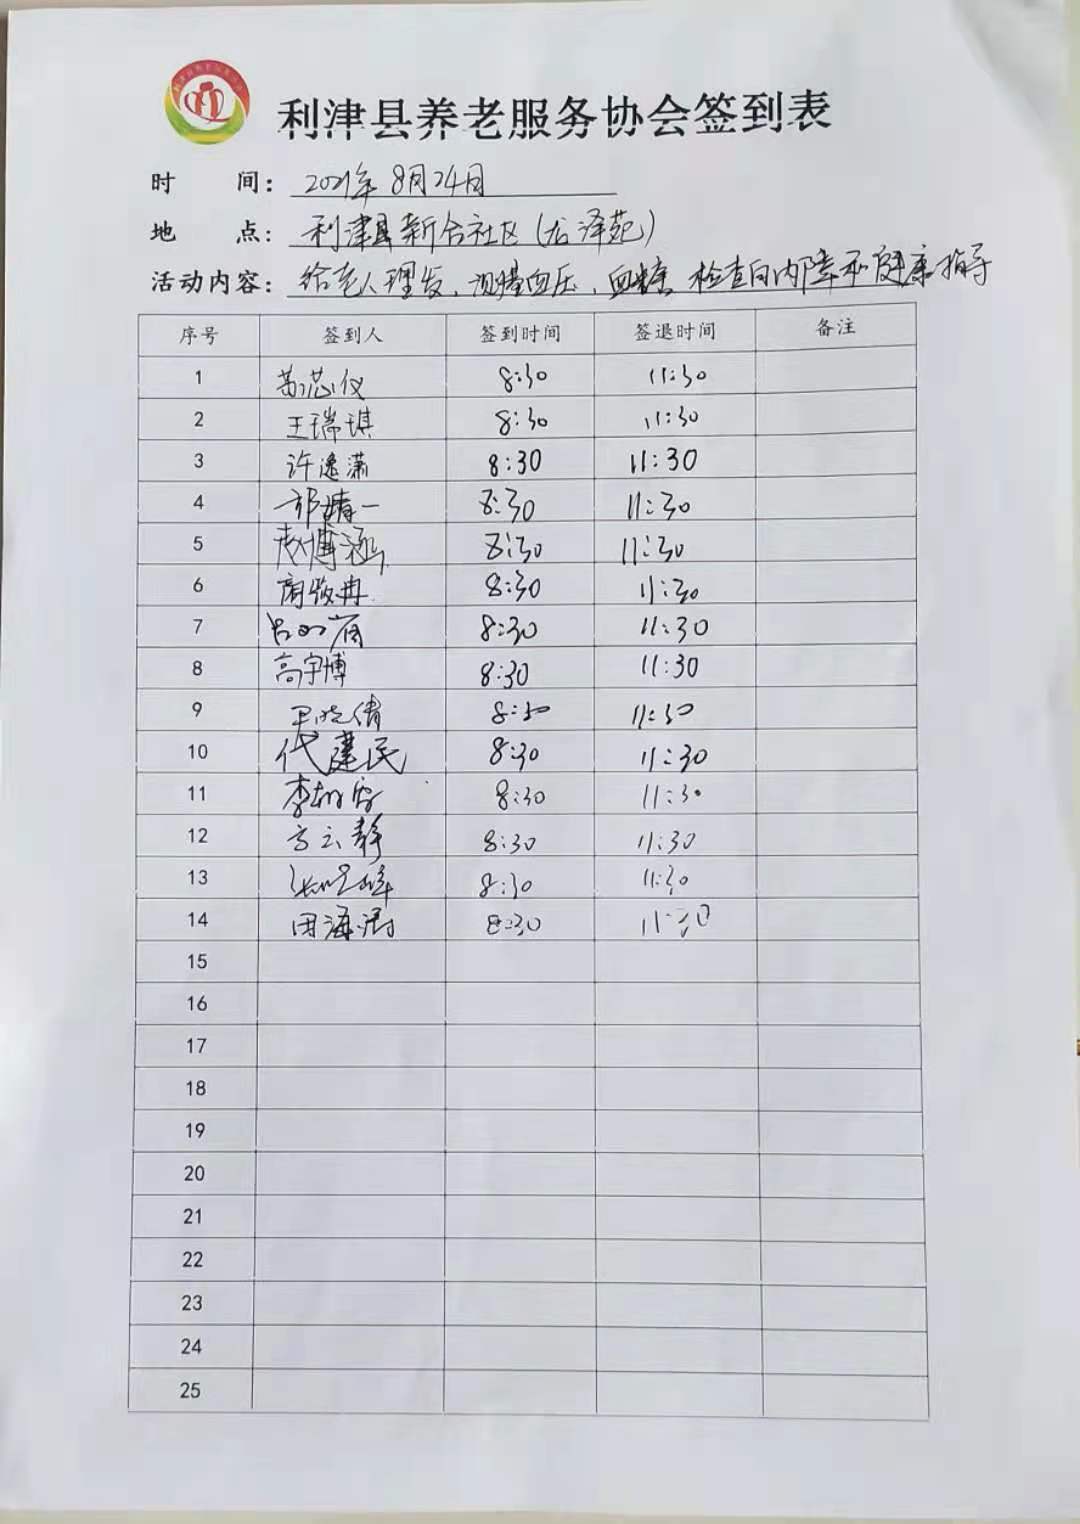 利津县养老服务协会签到表
时 间: 2021年8月24日
地 点: 利津县新合社区(龙泽苑)
活动内容: 给老人理发、测量血压、血糖、检查白内障和健康指导
序号 签到人 签到时间 签退时间 备注
1 8:30 11:30
2 王瑞琪 8:30 11:30
3 许逸潇 8:30 11:30
4 郭靖一 8:30 11:30
5 赵博涵 8:30 11:30
6 8:30 11:30
7 8:30 11:30
8 高宇博 8:30 11:30
9 8:30 11:30
10 代建民 8:30 11:30
11 8:30 11:30
12 方云静 8:30 11:30
13 8:30 11:30
14 田海涛 8:30 11:30
15
16
17
18
19
20
21
22
23
24
25